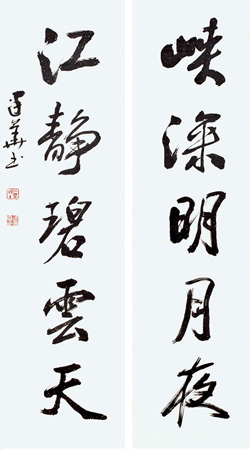 峡深明月夜
江静碧雲天